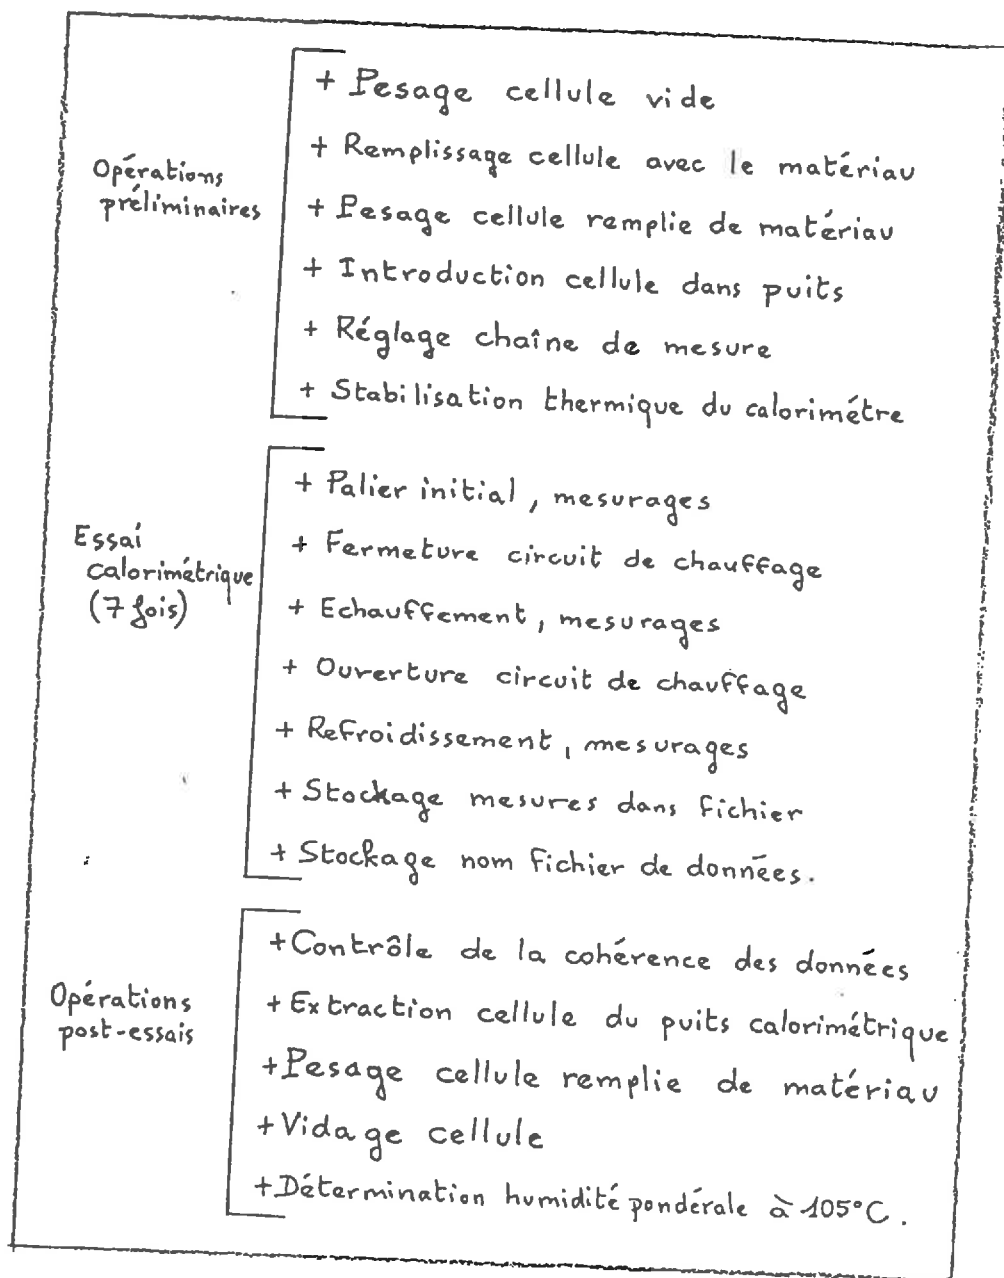 Opérations
préliminaires
+ Pesage cellule vide
+ Remplissage cellule avec le matériau
+ Pesage cellule remplie de matériau
+ Introduction cellule dans puits
+ Réglage chaîne de mesure
+ Stabilisation thermique du calorimétre
Essai
calorimétrique
(7 fois)
+ Palier initial, mesurages
+ Fermeture circuit de chauffage
+ Echauffement, mesurages
+ Ouverture circuit de chauffage
+ Refroidissement, mesurages
+ Stockage mesures dans fichier
+ Stockage nom fichier de données.
Opérations
post-essais
+Contrôle de la cohérence des données
+Extraction cellule du puits calorimétrique
+Pesage cellule remplie de matériau
+Vidage cellule
+Détermination humidité pondérale à 105°C.